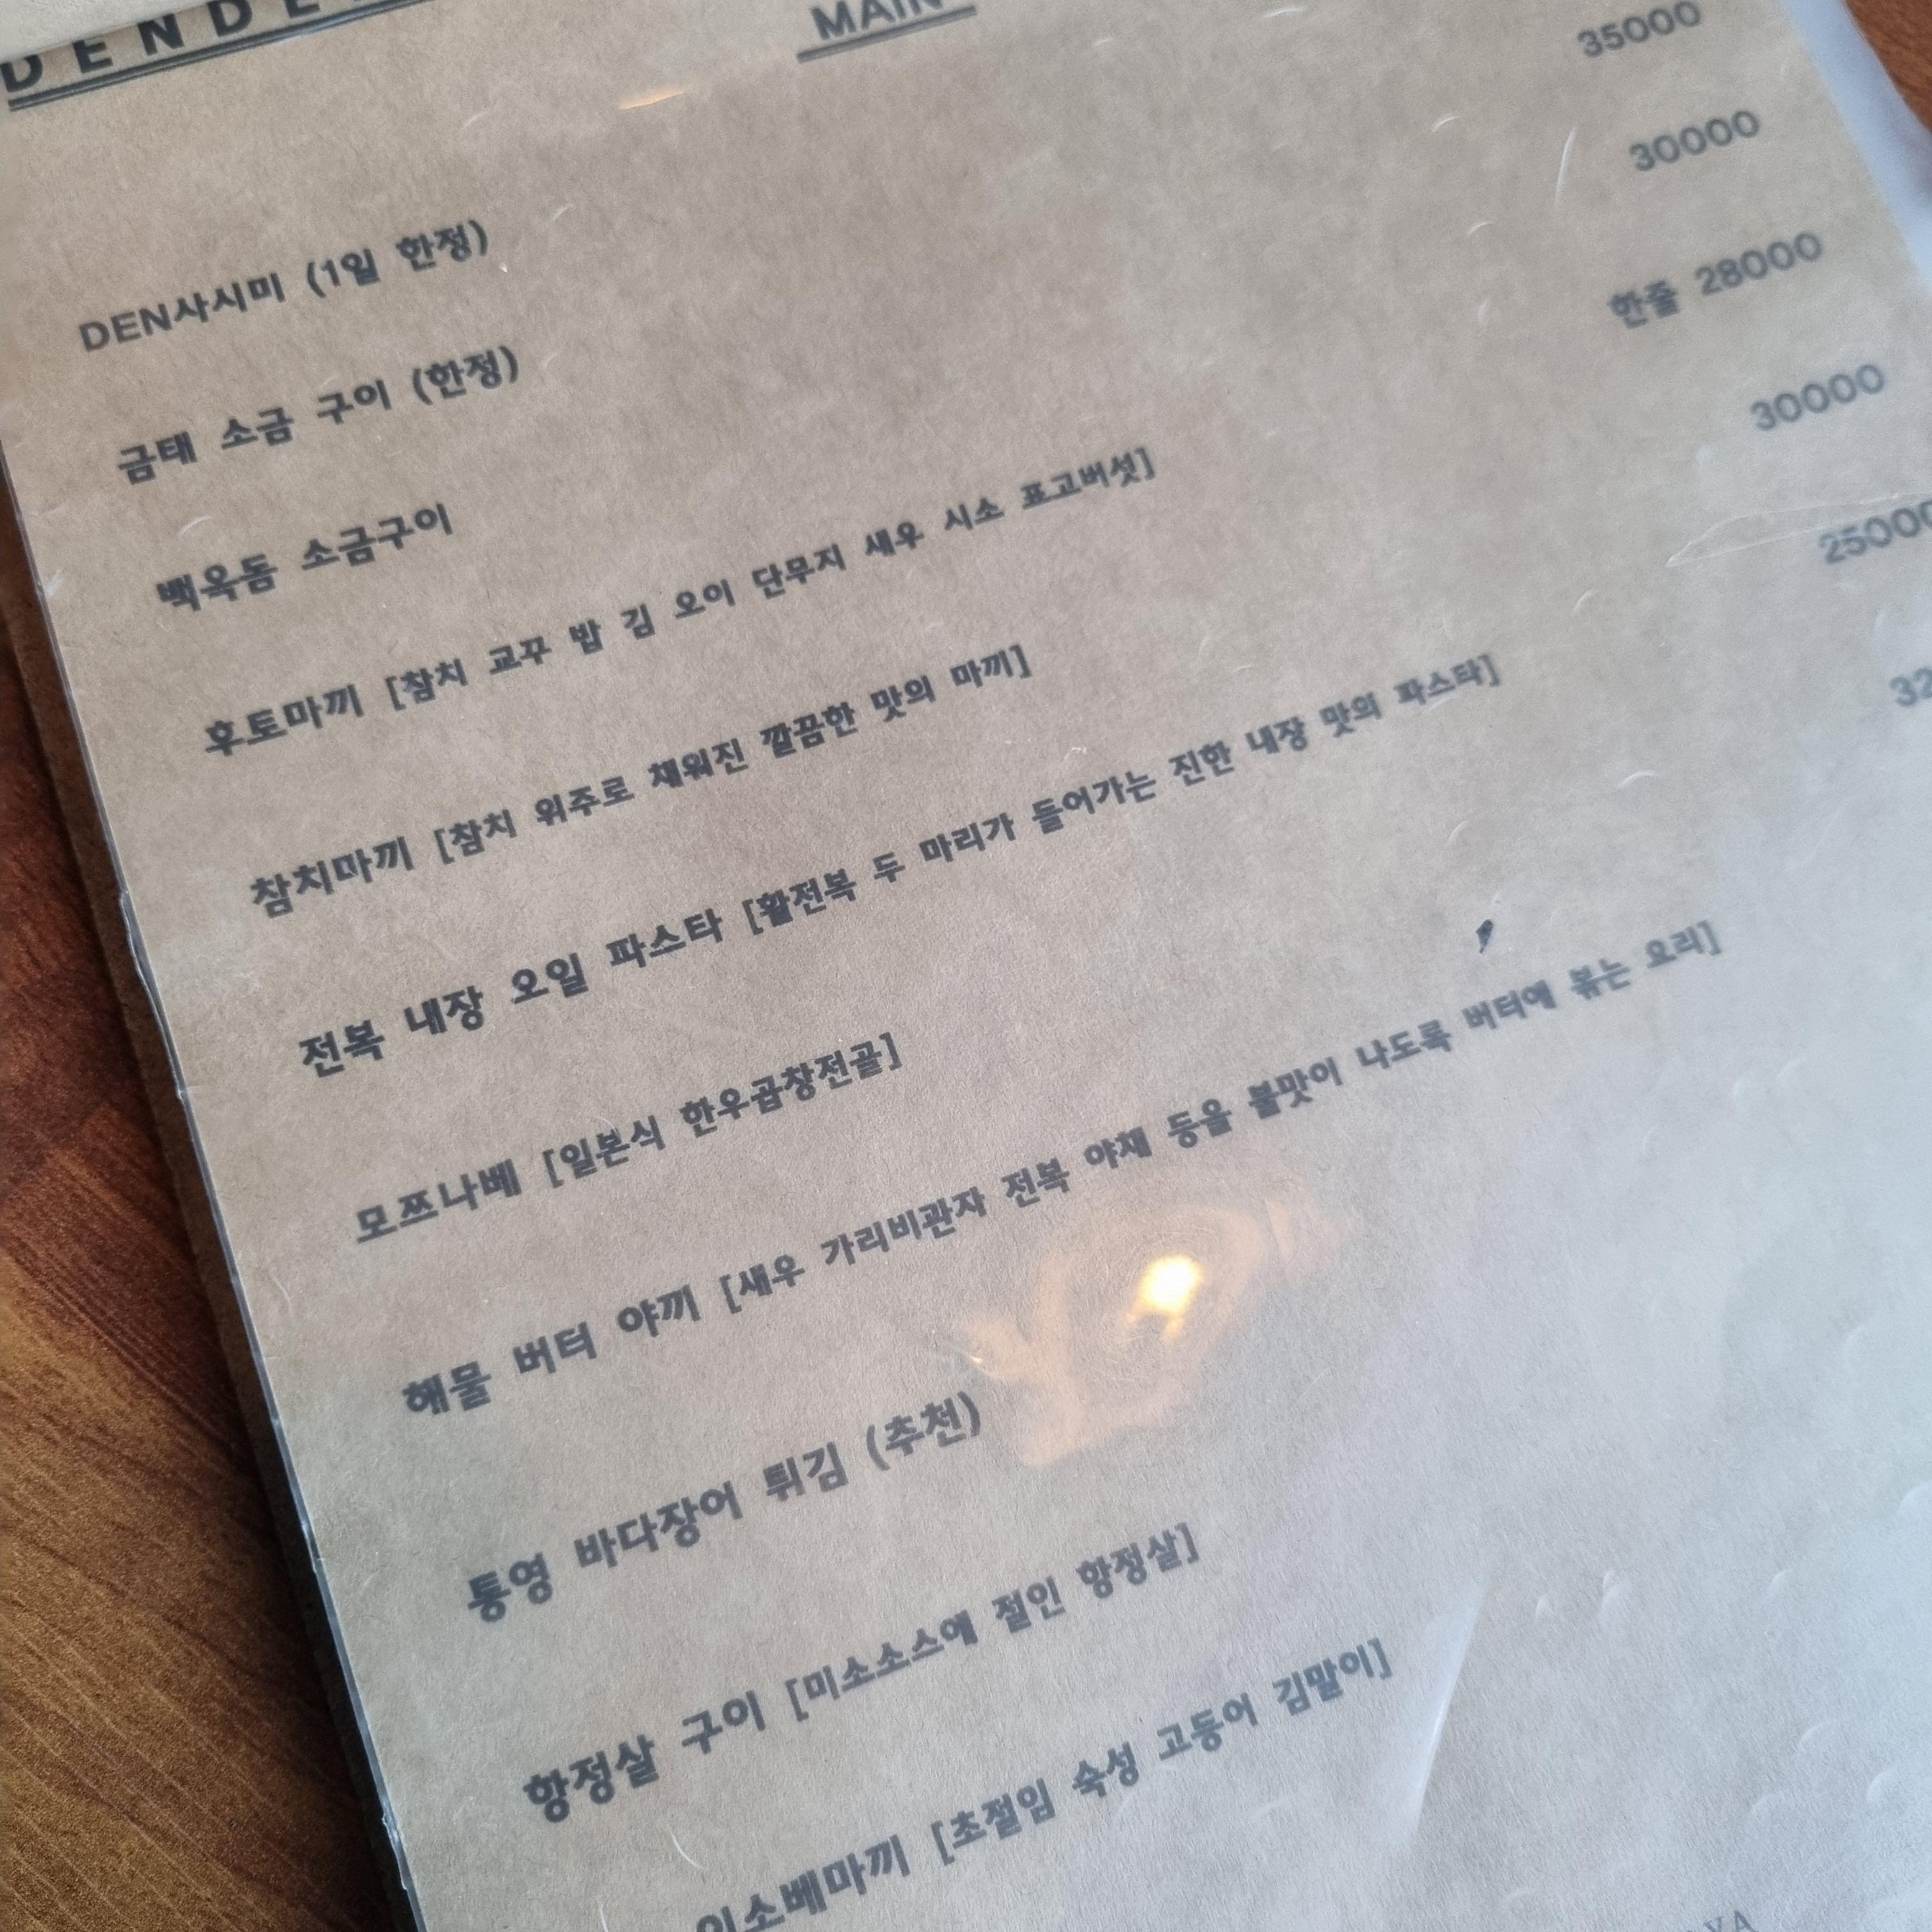 MAIN
DEN사시미 (1일 한정)
금태 소금 구이 (한정) 35000
백옥돔 소금구이 30000
후토마끼 [참치 교꾸 밥 김 오이 단무지 새우 시소 표고버섯] 한줄 28000
참치마끼 [참치 위주로 채워진 깔끔한 맛의 마끼] 30000
전복 내장 오일 파스타 [활전복 두 마리가 들어가는 진한 내장 맛의 파스타]
모쯔나베 [일본식 한우곱창전골]
해물 버터 야끼 [새우 가리비관자 전복 야채 등을 불맛이 나도록 버터에 볶는 요리]
통영 바다장어 튀김 (추천)
항정살 구이 [미소소스에 절인 항정살]
이소베마끼 [초절임 숙성 고등어 김말이]